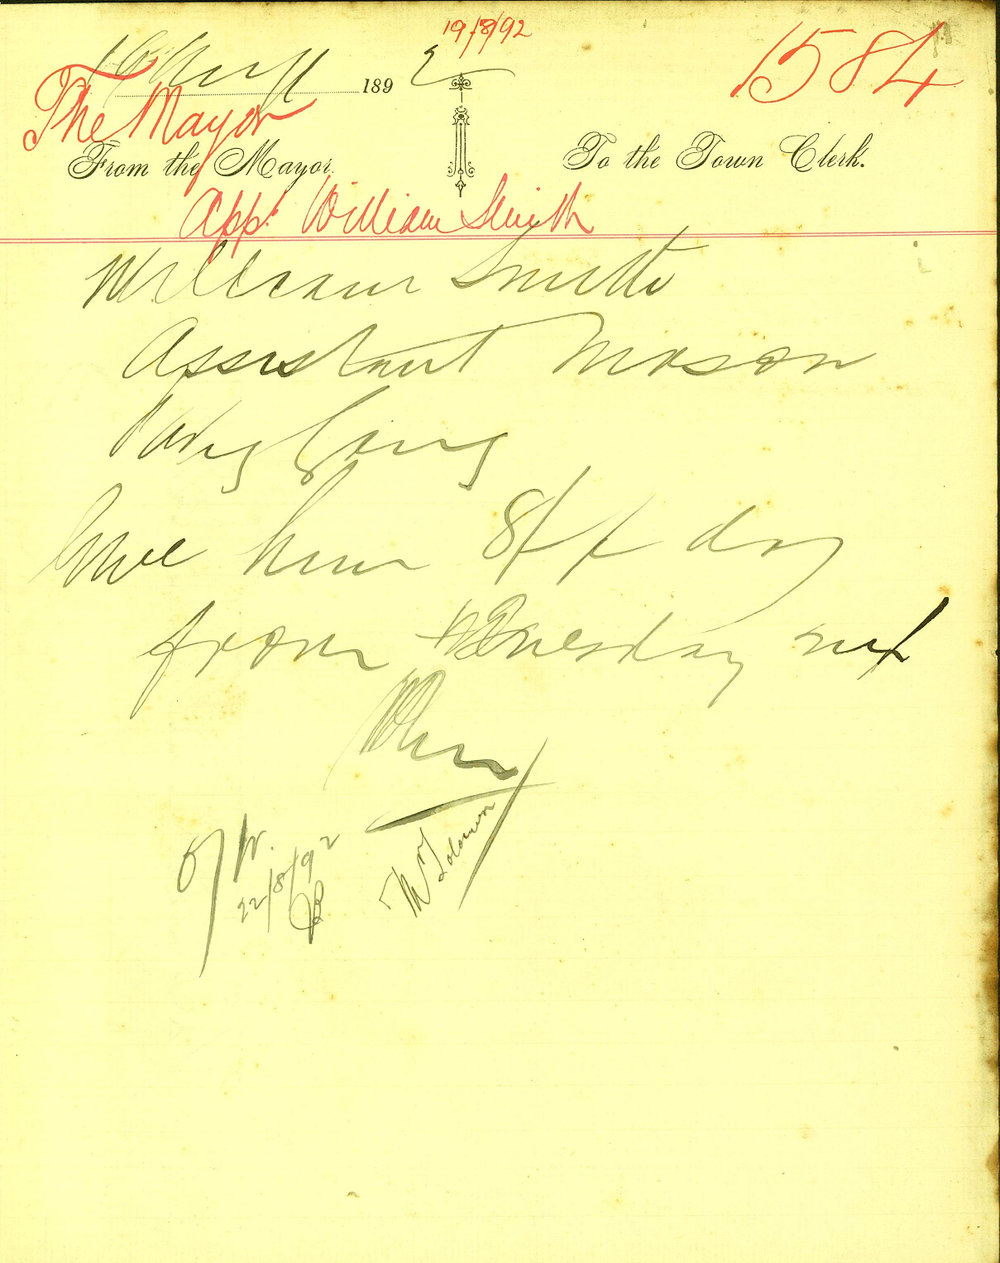 19/8/92
1584
19 Aug 1892
The Mayor
From the Mayor. To the Town Clerk.
App: William Smith
William Smith
Assistant Mason
Gang
Give him 8/- day
from Wednesday next
22/8/92